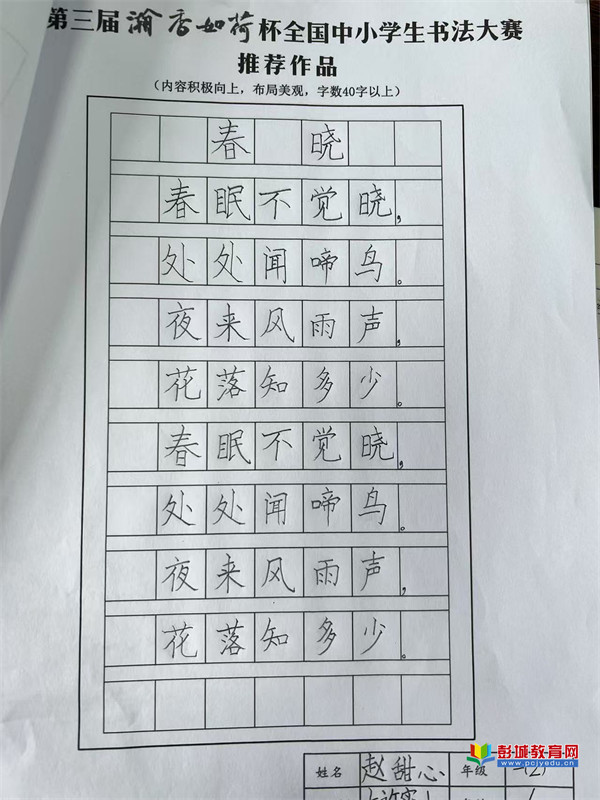 第三届瀚香如荷杯全国中小学生书法大赛
推荐作品
（内容积极向上，布局美观，字数40字以上）
春晓
春眠不觉晓，
处处闻啼鸟。
夜来风雨声，
花落知多少。
春眠不觉晓，
处处闻啼鸟。
夜来风雨声，
花落知多少。
姓名 赵甜心 年级 一(2)
彭城教育网
www.pcjyedu.cn